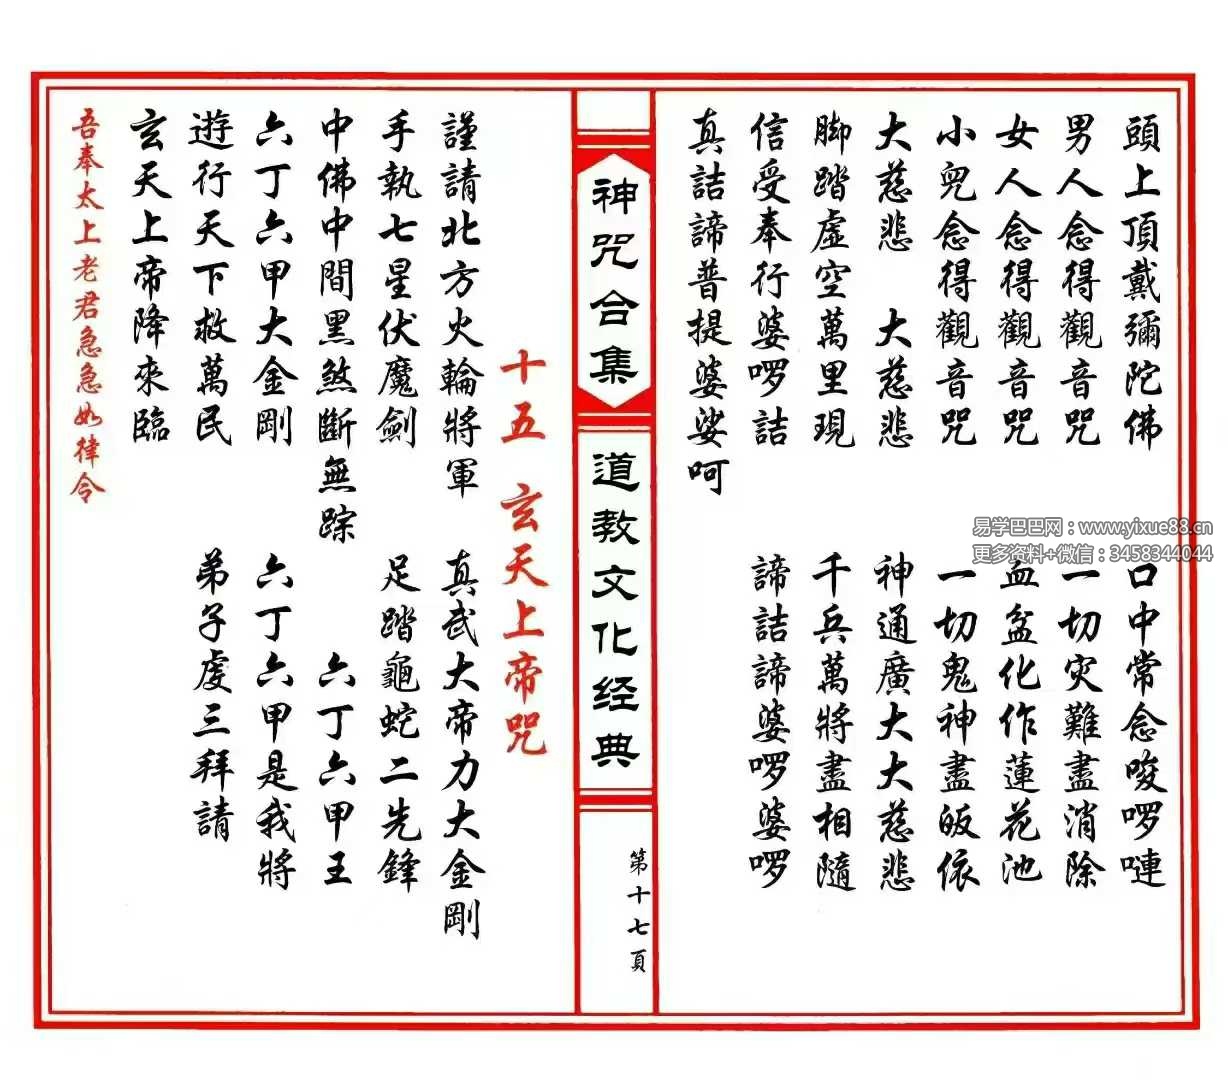 頭上頂戴彌陀佛 口中常念唆啰嗹
男人念得觀音咒 一切灾難盡消除
女人念得觀音咒 血盆化作蓮花池
小兒念得觀音咒 一切鬼神盡皈依
大慈悲 大慈悲 神通廣大大慈悲
脚踏虛空萬里現 千兵萬將盡相隨
信受奉行婆啰詰 諦詰諦婆啰婆啰
真詰諦普提婆娑呵
神咒合集
道教文化经典
第十七頁
十五 玄天上帝咒
謹請北方火輪將軍 真武大帝力大金剛
手執七星伏魔劍 足踏龜蛇二先鋒
中佛中間黑煞斷無踪 六丁六甲王
六丁六甲大金剛 六丁六甲是我將
遊行天下救萬民 弟子虔三拜請
玄天上帝降來臨
吾奉太上老君急急如律令
易学巴巴网：www.yixue88.cn
更多资料+微信：3458344044